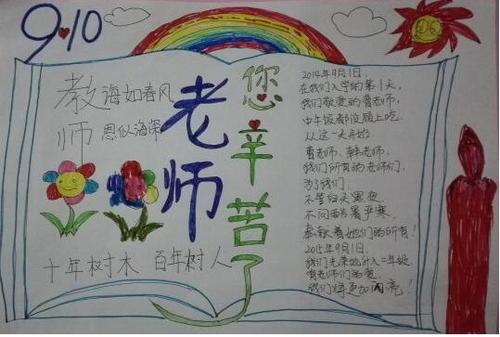 9.10
教诲如春风
师恩似海深
老师
您辛苦了
十年树木 百年树人
2014年9月1日
在我们入学的第1天,
我们敬爱的曹老师,
中午饭都没顾上吃
从这一天开始
曹老师,韩老师,
我们所有的老师们,
为了我们,
不管白天黑夜
不问酷暑严寒,
奉献着她们的所有!
2015年9月1日,
我们光荣地升入二年级
有老师们的爱
我们将更加闪亮!